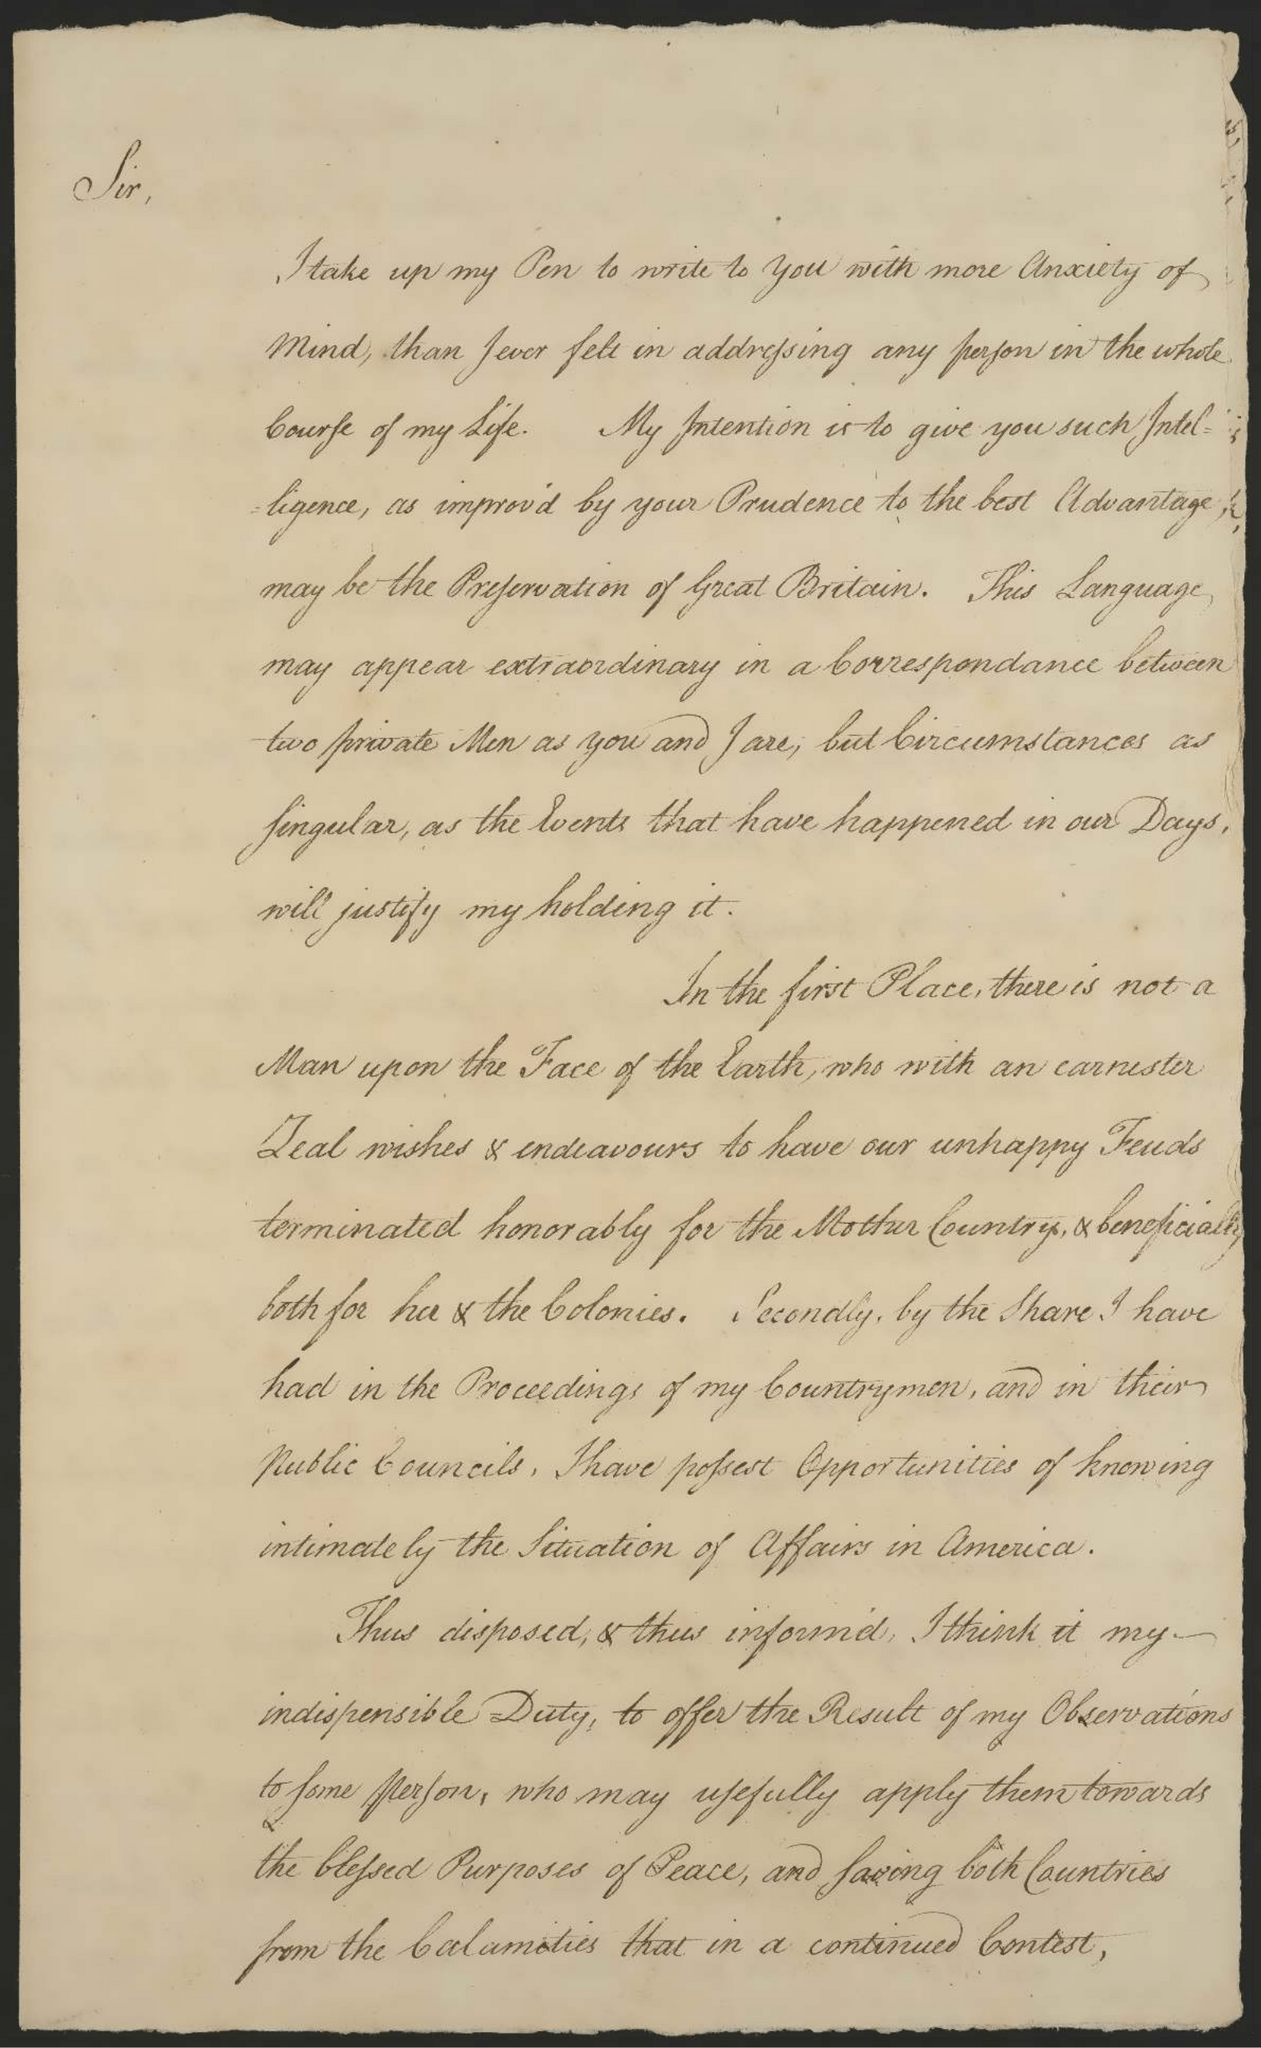 Sir,
I take up my Pen to write to You with more Anxiety of
Mind, than I ever felt in addressing any person in the whole
Course of my Life. My Intention is to give you such Intel=
=ligence, as improv'd by your Prudence to the best Advantage,
may be the Preservation of Great Britain. This Language
may appear extraordinary in a Correspondance between
two private Men as you and I are, but Circumstances as
singular, as the Events that have happened in our Days,
will justify my holding it.
In the first Place, there is not a
Man upon the Face of the Earth, who with an earnester
Zeal wishes & endeavours to have our unhappy Feuds
terminated honorably for the Mother Country, & beneficially
both for her & the Colonies. Secondly, by the Share I have
had in the Proceedings of my Countrymen, and in their
Public Councils, I have possest Opportunities of knowing
intimately the Situation of Affairs in America.
Thus disposed, & thus inform'd, I think it my
indispensible Duty, to offer the Result of my Observations
to some Person, who may usefully apply them towards
the blessed Purposes of Peace, and saving both Countries
from the Calamities that in a continued Contest,